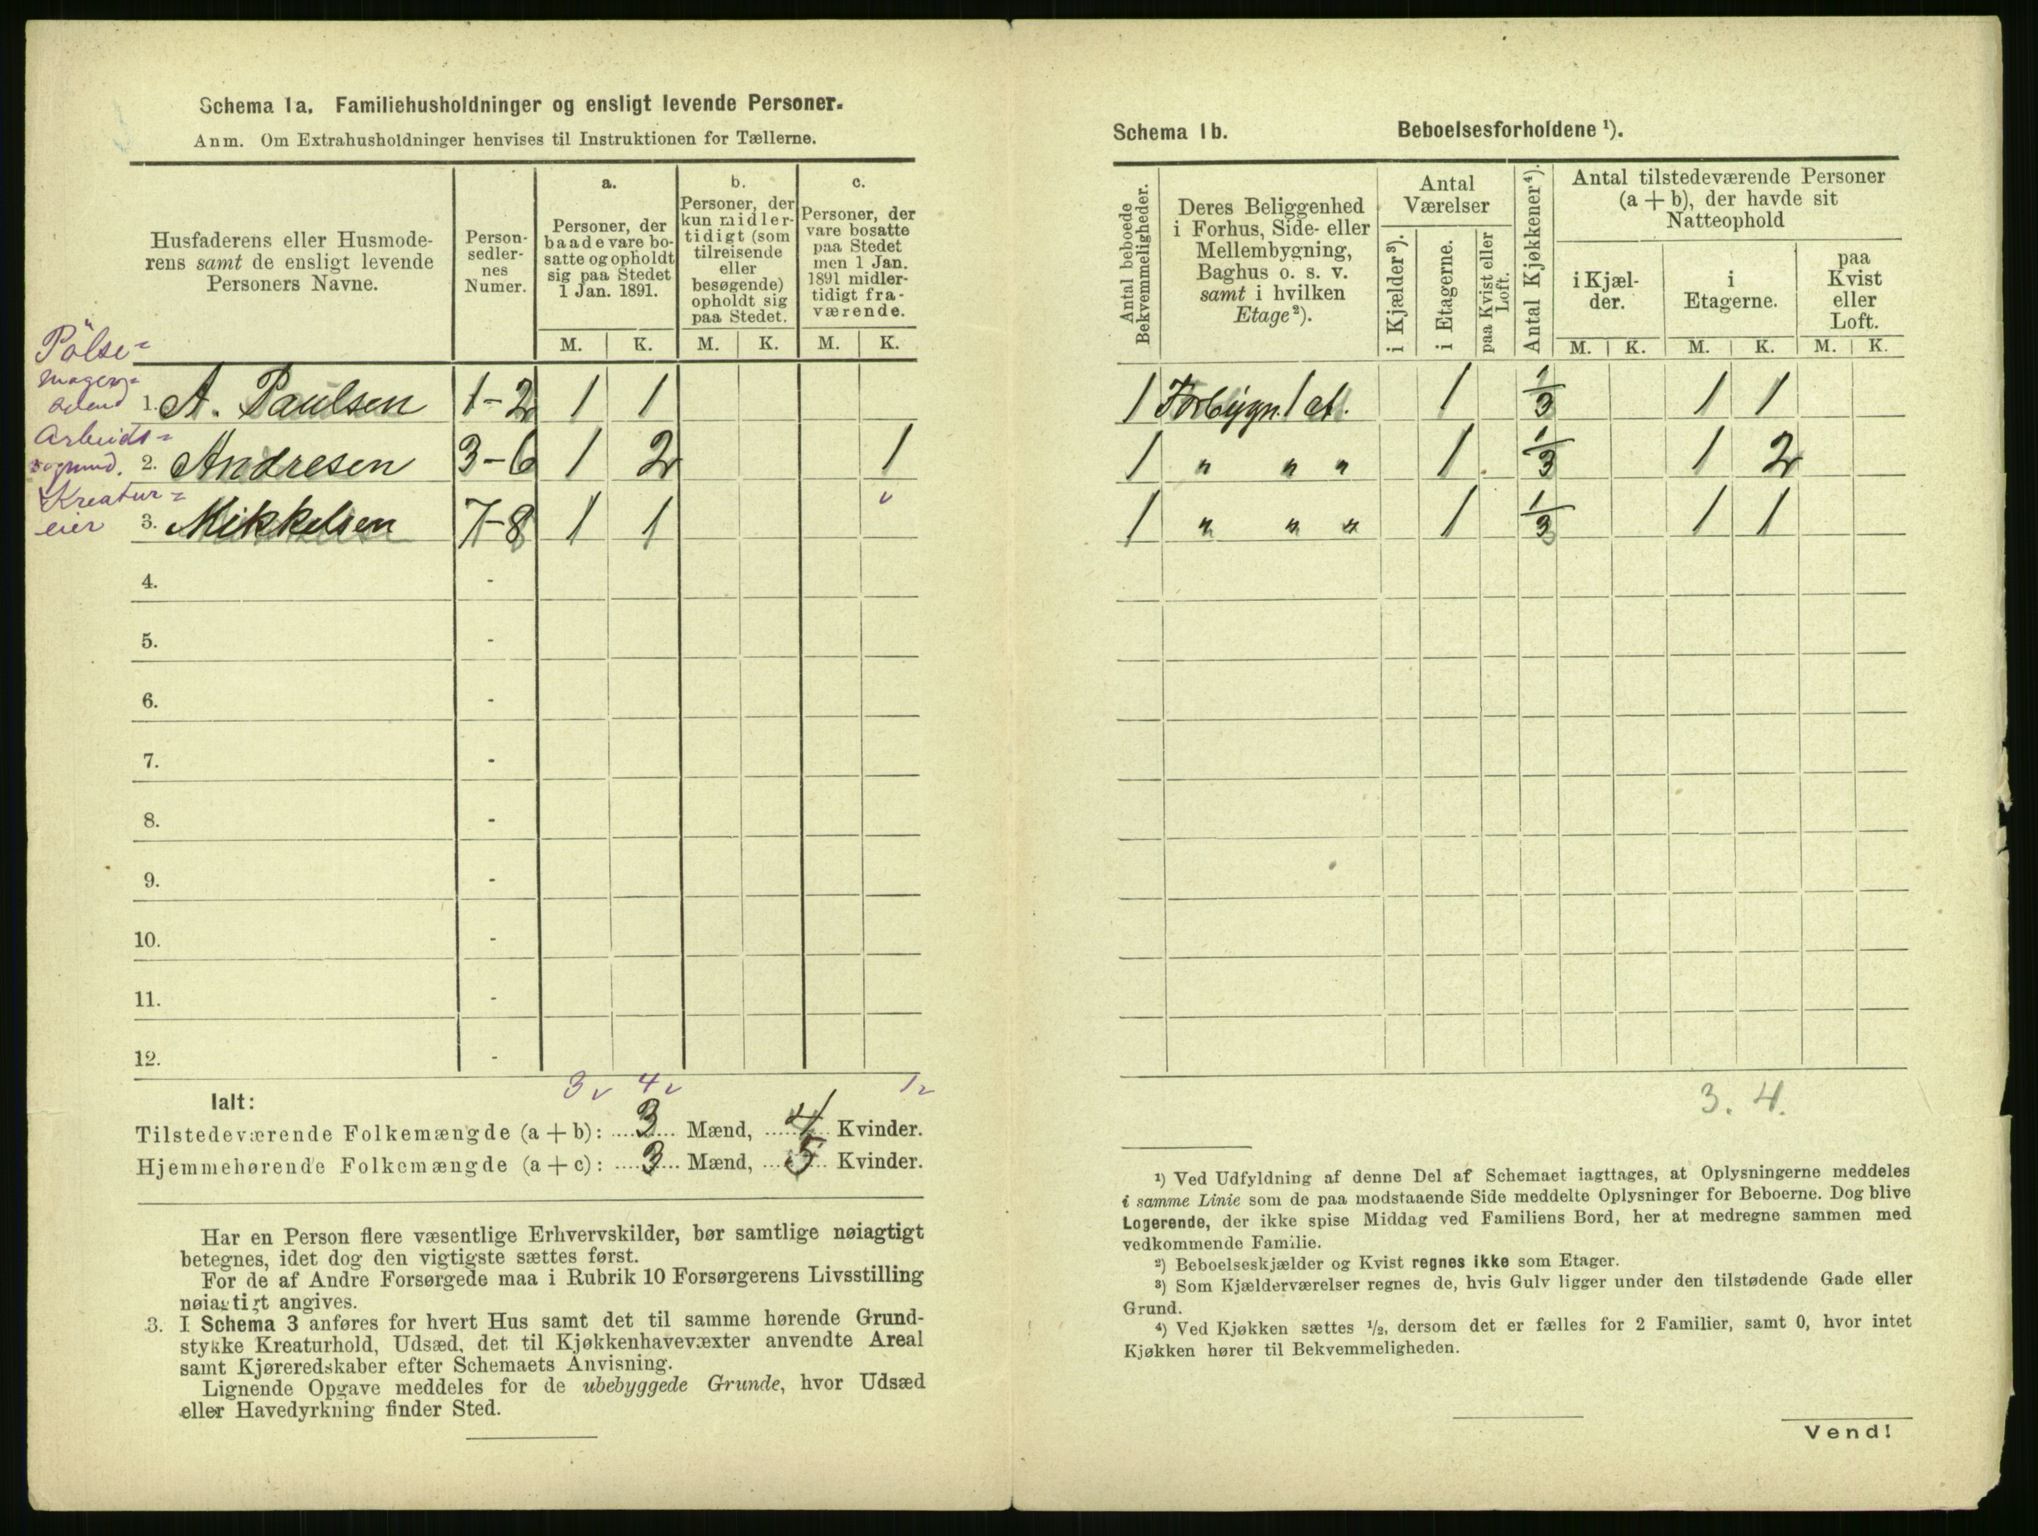 Schema 1a. Familiehusholdninger og ensligt levende Personer.
Anm. Om Extrahusholdninger henvises til Instruktionen for Tællerne.
Husfaderens eller Husmode-
rens samt de ensligt levende
Personers Navne.
Person-
sedler-
nes
Numer.
a.
Personer, der
baade vare bo-
satte og opholdt
sig paa Stedet
1 Jan. 1891.
b.
Personer, der
kun midler-
tidigt (som
tilreisende
eller
besøgende)
opholdt sig
paa Stedet.
c.
Personer, der
vare bosatte
paa Stedet
men 1 Jan.
1891 midler-
tidigt fra-
værende.
M. K. M. K. M. K.
Pölse-
mager-
1. A. Paulsen 1-2 1 1
Arbeids-
2. Andresen 3-6 1 2 1
Kreatur-
eier 3. Mikkelsen 7-8 1 1
4. -
5. -
6. -
7. -
8. -
9. -
10. -
11. -
12. -
3 4 1
Ialt:
Tilstedeværende Folkemængde (a + b): 3 Mænd, 4 Kvinder.
Hjemmehørende Folkemængde (a + c): 3 Mænd, 5 Kvinder.
Har en Person flere væsentlige Erhvervskilder, bør samtlige nøiagtigt
betegnes, idet dog den vigtigste sættes først.
For de af Andre Forsørgede maa i Rubrik 10 Forsørgerens Livsstilling
nøiagtigt angives.
3. I Schema 3 anføres for hvert Hus samt det til samme hørende Grund-
stykke Kreaturhold, Udsæd, det til Kjøkkenhavevæxter anvendte Areal
samt Kjøreredskaber efter Schemaets Anvisning.
Lignende Opgave meddeles for de ubebyggede Grunde, hvor Udsæd
eller Havedyrkning finder Sted.
Schema 1b. Beboelsesforholdene ¹).
Antal beboede
Bekvemmeligheder.
Deres Beliggenhed
i Forhus, Side- eller
Mellembygning,
Baghus o. s. v.
samt i hvilken
Etage ²).
Antal
Værelser
i Kjælder ³).
i Etagerne.
paa Kvist eller
Loft.
Antal Kjøkkener ⁴).
Antal tilstedeværende Personer
(a + b), der havde sit
Natteophold
i Kjæl-
der.
i
Etagerne.
paa
Kvist
eller
Loft.
M. K. M. K. M. K.
1 Forbygn. 1 et. 1 1/3 1 1
1 " " " 1 1/3 1 2
1 " " " 1 1/3 1 1
3. 4.
¹) Ved Udfyldning af denne Del af Schemaet iagttages, at Oplysningerne meddeles
i samme Linie som de paa modstaaende Side meddelte Oplysninger for Beboerne. Dog blive
Logerende, der ikke spise Middag ved Familiens Bord, her at medregne sammen med
vedkommende Familie.
²) Beboelseskjælder og Kvist regnes ikke som Etager.
³) Som Kjælderværelser regnes de, hvis Gulv ligger under den tilstødende Gade eller
Grund.
⁴) Ved Kjøkken sættes 1/2, dersom det er fælles for 2 Familier, samt 0, hvor intet
Kjøkken hører til Bekvemmeligheden.
Vend!